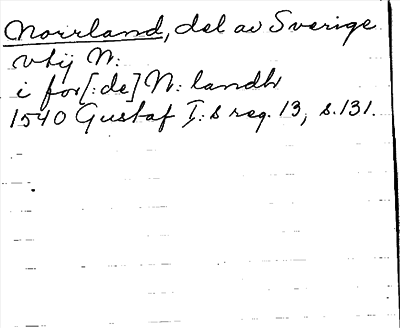 Norrland, del av Sverige
vtij N:
i for[:de] N: landh
1540 Gustaf I:s reg. 13, s. 131.